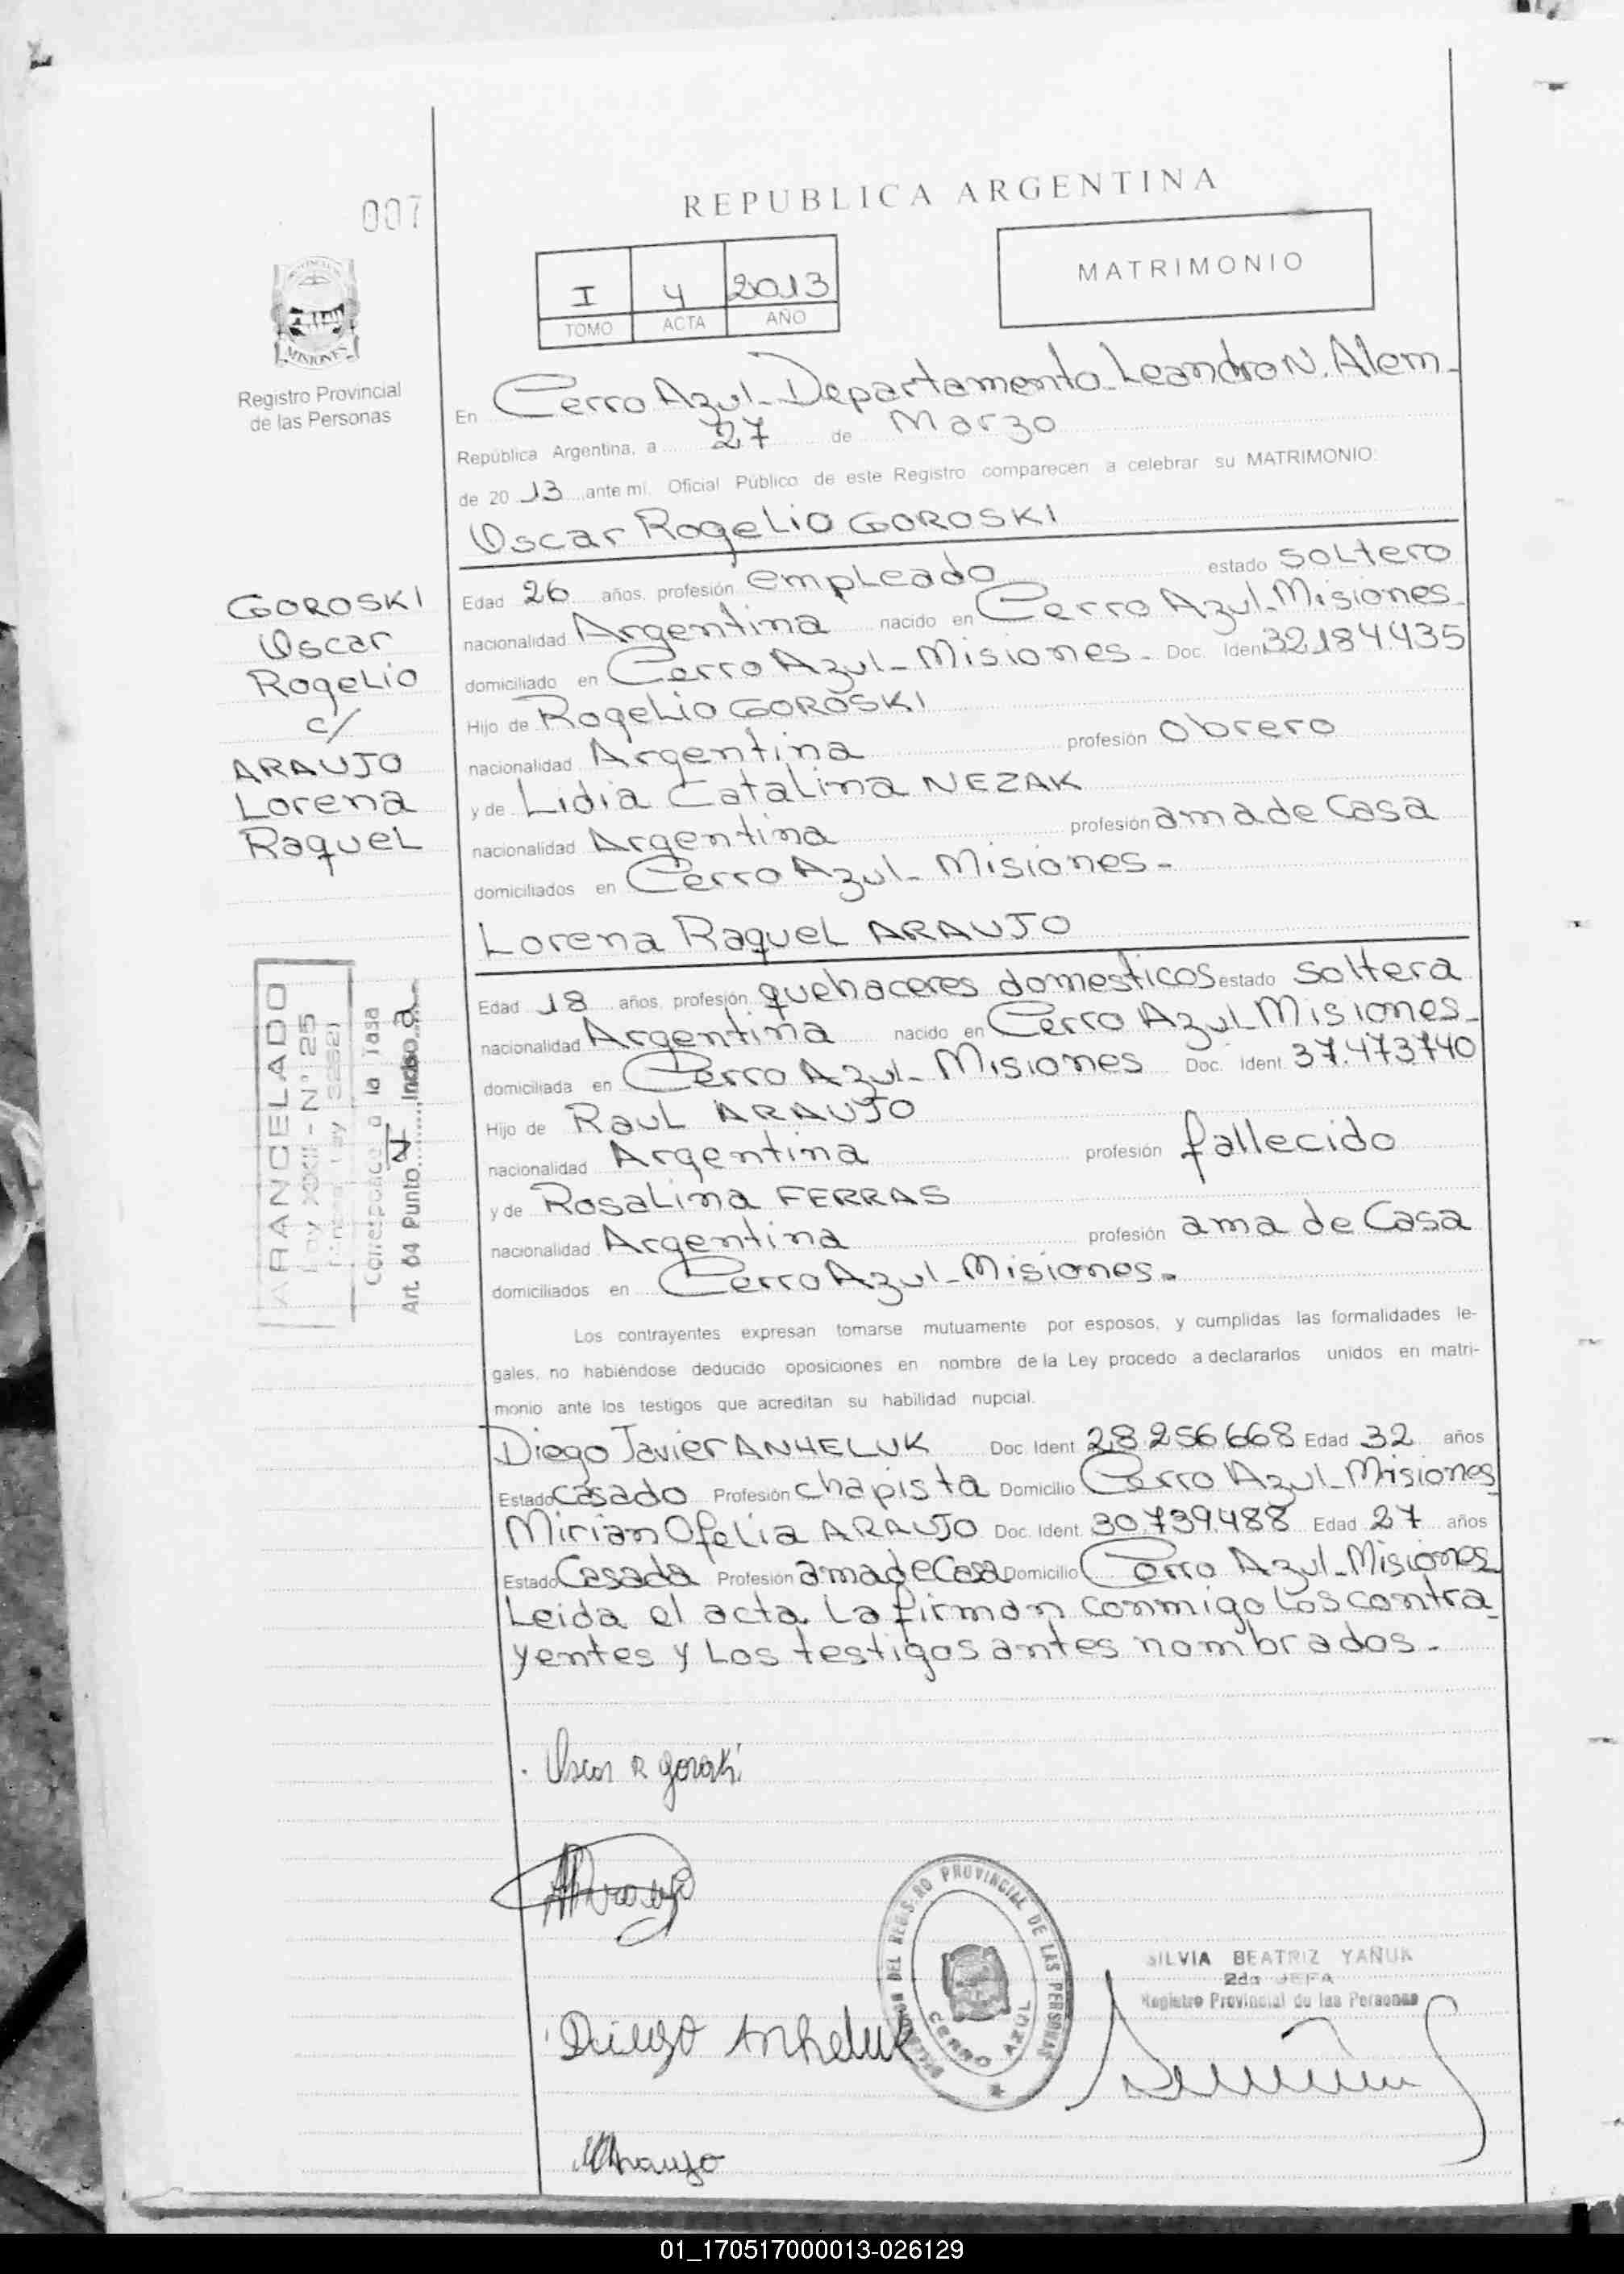 007
REPUBLICA ARGENTINA
I 4 2013
TOMO ACTA AÑO
MATRIMONIO
MISIONES
Registro Provincial
de las Personas
En Cerro Azul - Departamento - Leandro N. Alem -
República Argentina, a 27 de Marzo
de 20 13 ante mí, Oficial Público de este Registro comparecen a celebrar su MATRIMONIO:
Oscar Rogelio GOROSKI
Edad 26 años, profesión empleado estado soltero
nacionalidad Argentina nacido en Cerro Azul - Misiones -
domiciliado en Cerro Azul - Misiones - Doc. Iden 32.184.435
Hijo de Rogelio GOROSKI
nacionalidad Argentina profesión Obrero
y de Lidia Catalina NEZAK
nacionalidad Argentina profesión ama de Casa
domiciliados en Cerro Azul - Misiones -
GOROSKI
Oscar
Rogelio
c/
ARAUJO
Lorena
Raquel
Lorena Raquel ARAUJO
Edad 18 años, profesión quehaceres domesticos estado soltera
nacionalidad Argentina nacido en Cerro Azul Misiones -
domiciliada en Cerro Azul - Misiones Doc. Ident. 37.473740
Hijo de Raul ARAUJO
nacionalidad Argentina profesión fallecido
y de Rosalina FERRAS
nacionalidad Argentina profesión ama de Casa
domiciliados en Cerro Azul - Misiones -
ARANCELADO
Ley XXII - N° 25
Corresponde a la Tasa
Art. 64 Punto IV Inciso a
Los contrayentes expresan tomarse mutuamente por esposos, y cumplidas las formalidades le-
gales, no habiéndose deducido oposiciones en nombre de la Ley procedo a declararlos unidos en matri-
monio ante los testigos que acreditan su habilidad nupcial.
Diego Javier ANHELUK Doc. Ident. 28.256.668 Edad 32 años
Estado Casado Profesión chapista Domicilio Cerro Azul - Misiones
Mirian Ofelia ARAUJO Doc. Ident. 30.739.488 Edad 27 años
Estado Casada Profesión ama de Casa Domicilio Cerro Azul - Misiones
Leida el acta. La firman conmigo los contra_
yentes y Los testigos antes nombrados -
Oscar R goroski
Araujo
DEL REGISTRO PROVINCIAL DE LAS PERSONAS
CERRO AZUL
SILVIA BEATRIZ YAÑUK
2da JEFA
Registro Provincial de las Personas
Diego Anheluk
MAraujo
01_170517000013-026129